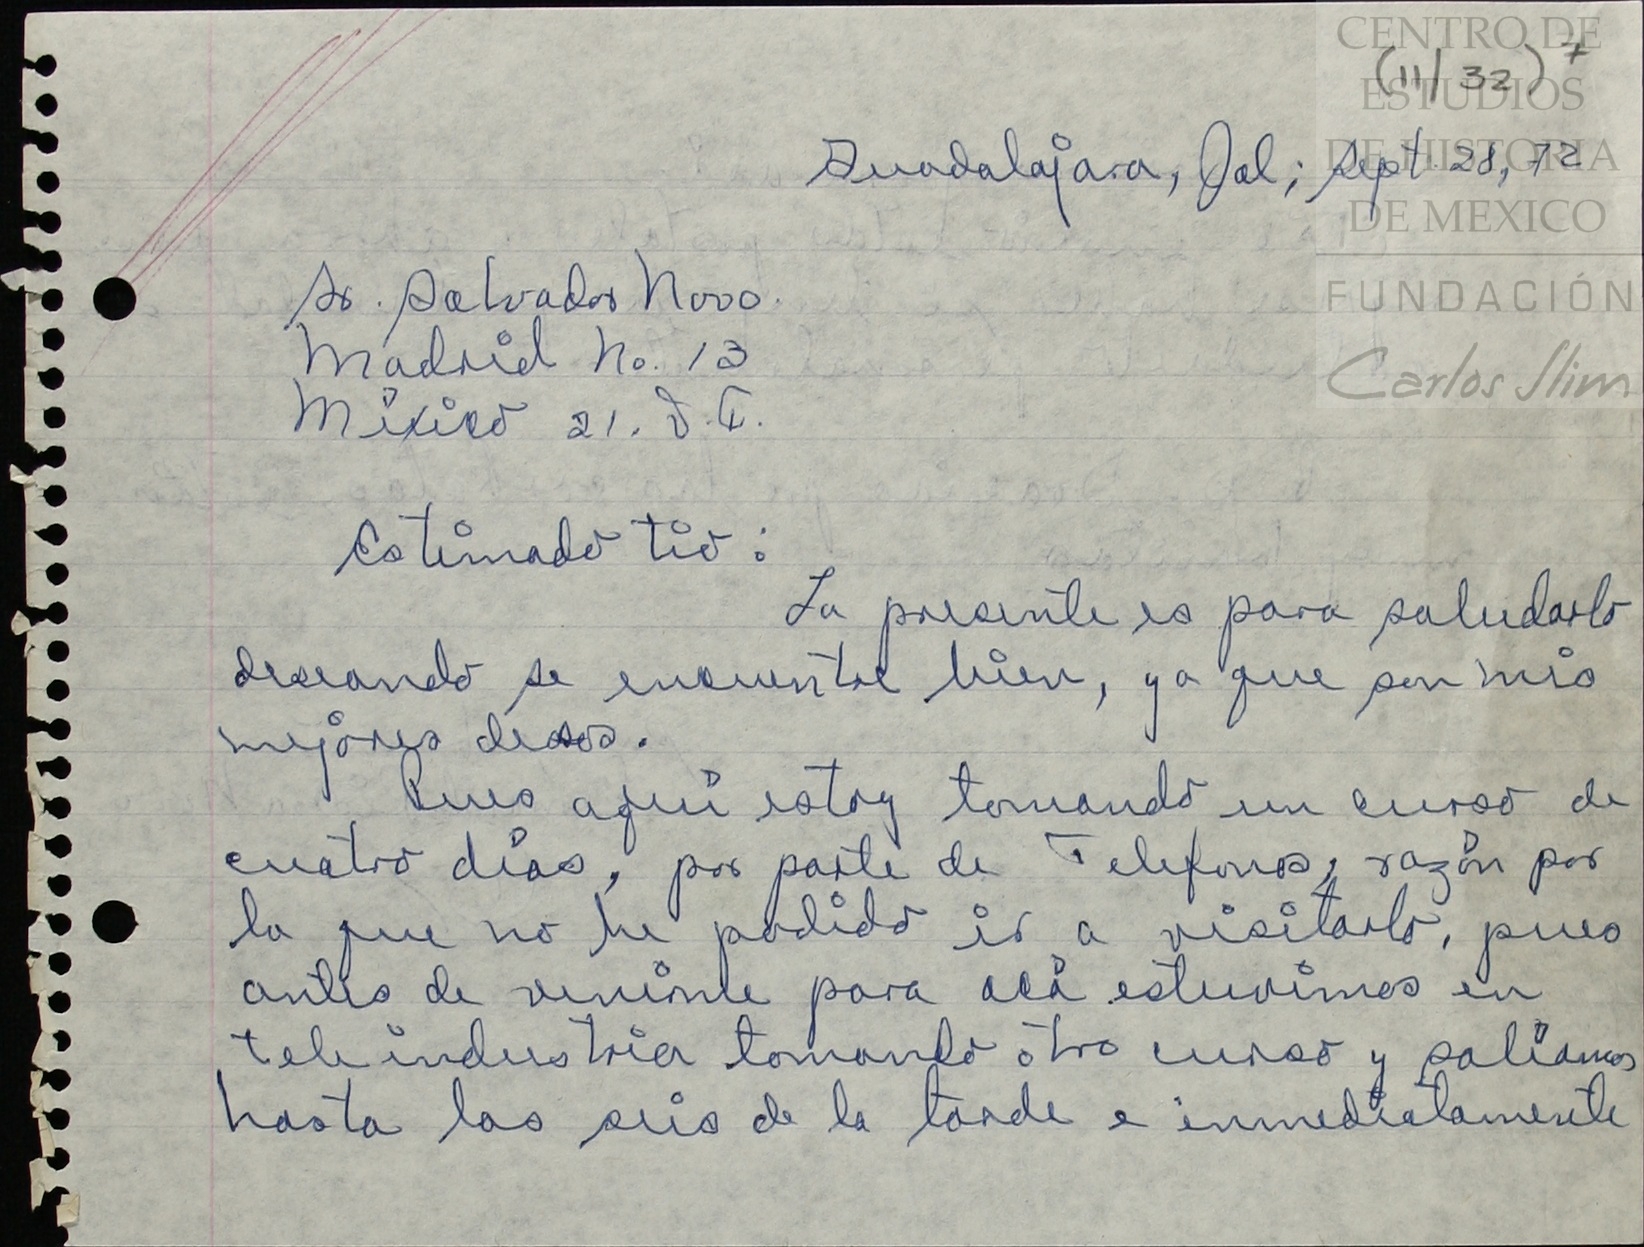 CENTRO DE
ESTUDIOS
DE HISTORIA
DE MEXICO
FUNDACIÓN
Carlos Slim
(11/32) 7
Guadalajara, Jal; Sept. 28, 72
Sr. Salvador Novo.
Madrid No. 13
México 21. D.F.
Estimado tio:
La presente es para saludarlo
deseando se encuentre bien, ya que son mis
mejores deseos.
Pues aquí estoy tomando un curso de
cuatro días, por parte de Telefonos, razón por
la que no he podido ir a visitarlo, pues
antes de venirme para acá estuvimos en
teleindustria tomando otro curso y salíamos
hasta las seis de la tarde e inmediatamente